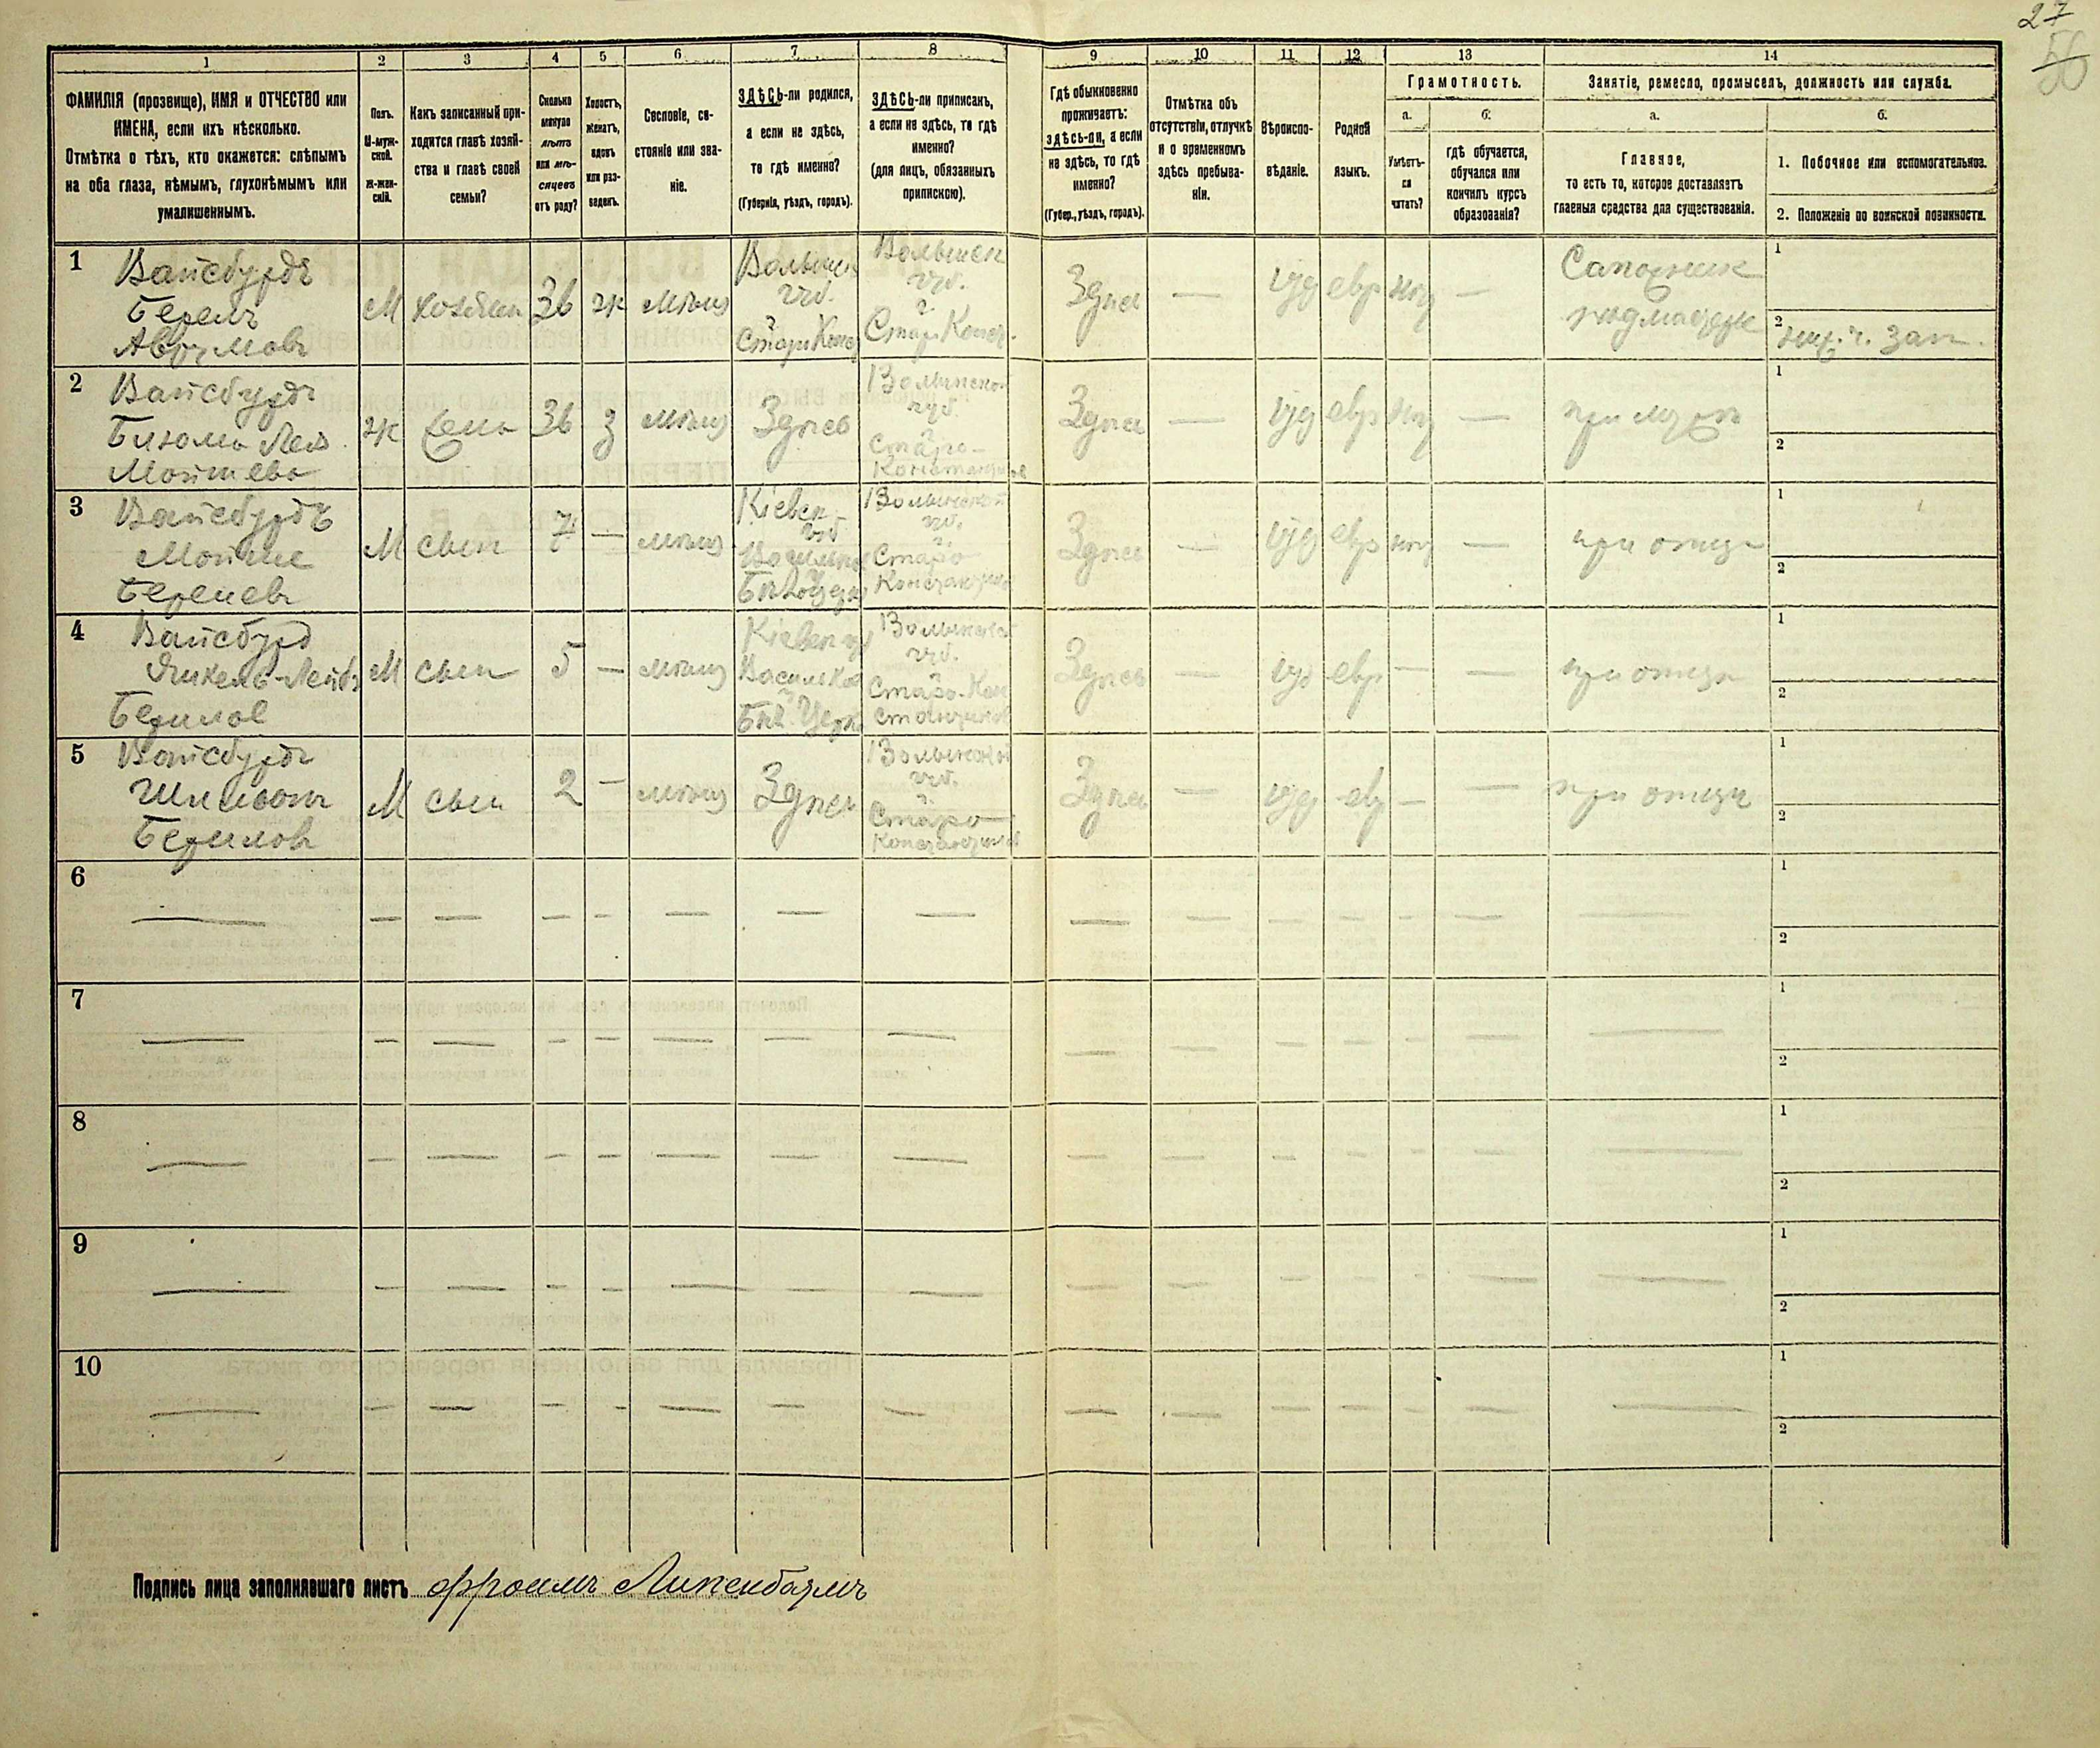 27
56
1 2 3 4 5 6 7 8 9 10 11 12 13 14
ФАМИЛІЯ (прозвище), ИМЯ и ОТЧЕСТВО или
ИМЕНА, если ихъ нѣсколько.
Отмѣтка о тѣхъ, кто окажется: слѣпымъ
на оба глаза, нѣмымъ, глухонѣмымъ или
умалишеннымъ.
Полъ.
М-муж-
ской.
Ж-жен-
скій.
Какъ записанный при-
ходится главѣ хозяй-
ства и главѣ своей
семьи?
Сколько
минуло
лѣтъ
или мѣ-
сяцевъ
отъ роду?
Холостъ,
женатъ,
вдовъ
или раз-
веденъ.
Сословіе, со-
стояніе или зва-
ніе.
ЗДѢСЬ-ли родился,
а если не здѣсь,
то гдѣ именно?
(Губернія, уѣздъ, городъ).
ЗДѢСЬ-ли приписанъ,
а если не здѣсь, то гдѣ
именно?
(для лицъ, обязанныхъ
припискою).
Гдѣ обыкновенно
проживаетъ:
здѣсь-ли, а если
не здѣсь, то гдѣ
именно?
(Губер., уѣздъ, городъ).
Отмѣтка объ
отсутствіи, отлучкѣ
и о временномъ
здѣсь пребыва-
ніи.
Вѣроиспо-
вѣданіе.
Родной
языкъ.
Грамотность.
а.
Умѣетъ-
ли
читать?
б.
гдѣ обучается,
обучался или
кончилъ курсъ
образованія?
Занятіе, ремесло, промыселъ, должность или служба.
а.
Главное,
то есть то, которое доставляетъ
главныя средства для существованія.
б.
1. Побочное или вспомогательное.
2. Положеніе по воинской повинности.
1
Вайсбурдъ
Берелъ
Аврумовъ
М
хозяин
36
ж
мѣщ
Волынск
губ.
г.
Стар. Конс
Волынск
губ.
г.
Стар. Конст.
Здесь
—
іуд
евр
нет
—
Сапожник
подмастерье
1
2
ниж. ч. зап.
2
Вайсбурдъ
Мойшева
ж
жена
36
з
мѣщ
Здесь
Волынской
губ.
г.
Старо-
Константинов
Здесь
—
іуд
евр
нет
—
при муже
1
2
3
Вайсбурдъ
Мойше
Берелев
М
сын
7
—
мѣщ
Кіевск
губ
Васильков
Бѣл. Церк
Волынской
губ.
г.
Старо
Константинов
Здесь
—
іуд
евр
нет
—
при отце
1
2
4
Вайсбурд
Янкель-Лейб
Берилов
М
сын
5
—
мѣщ
Кіевск губ
Васильков
Бѣл. Церк
Волынской
губ.
г.
Старо-Кон
стантинов
Здесь
—
іуд
евр
—
—
при отце
1
2
5
Вайсбурдъ
Берилов
М
сын
2
—
мѣщ
Здесь
Волынской
губ.
г.
Старо
Константинов
Здесь
—
іуд
евр
—
—
при отце
1
2
6
— — — — — — — — — — — — — — —
1
2
7
— — — — — — — — — — — — — — —
1
2
8
— — — — — — — — — — — — — — —
1
2
9
— — — — — — — — — — — — — — —
1
2
10
— — — — — — — — — — — — — — —
1
2
Подпись лица заполнявшаго листъ Фроимъ Липенбаумъ